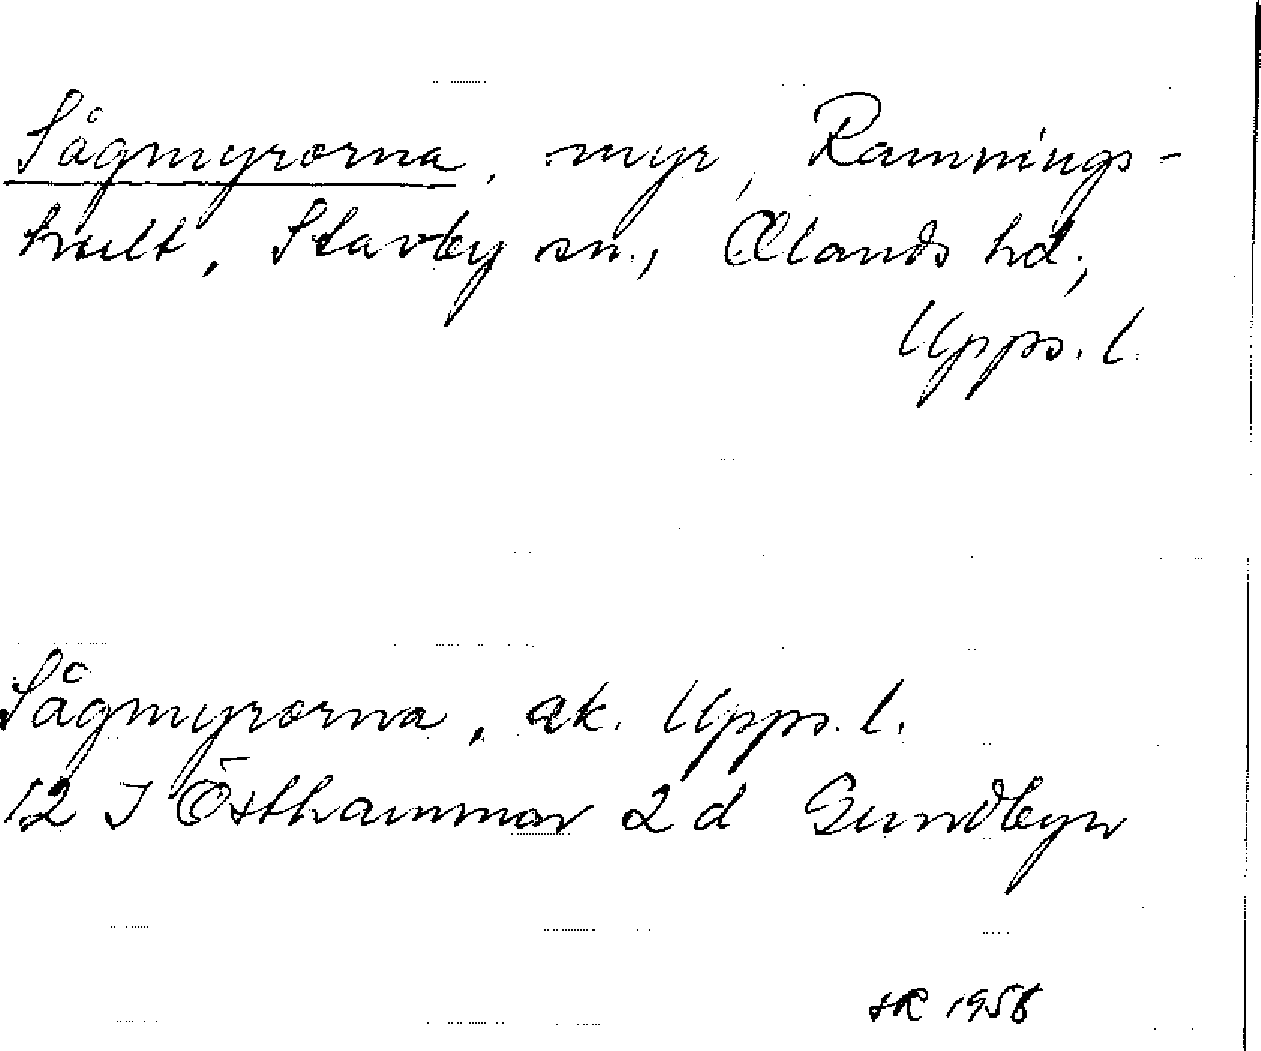 Sågmyrorna, myr, Rammings-
hult, Stavby sn., Olands hd.,
Upps. l.
Sågmyrorna, ek. Upps. l.
12 I Östhammar 2 d Gundbyn
HR 1956